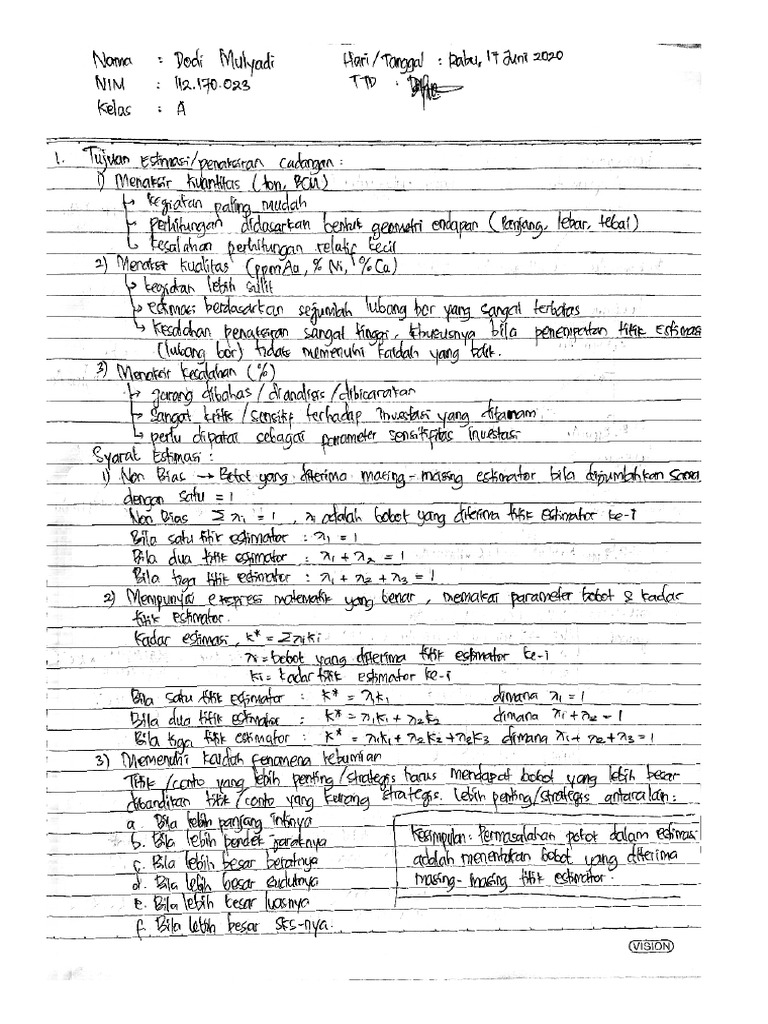 Nama : Dodi Mulyadi Hari/Tanggal : Rabu, 17 Juni 2020
NIM : 112.170.023 TTD :
Kelas : A
1. Tujuan Estimasi/penaksiran cadangan :
1) Menaksir kuantitas (ton, BCM)
↳ kegiatan paling mudah
↳ perhitungan didasarkan bentuk geometri endapan (panjang, lebar, tebal)
↳ kesalahan perhitungan relatif kecil
2) Menaksir kualitas (ppm Au, % Ni, % Cu)
↳ kegiatan lebih sulit
↳ estimasi berdasarkan sejumlah lubang bor yang sangat terbatas
↳ kesalahan penaksiran sangat tinggi, khususnya bila penempatan titik estimasi
(lubang bor) tidak memenuhi kaidah yang baik.
3) Menaksir kesalahan (%)
↳ jarang dibahas / dianalisis / dibicarakan
↳ sangat kritis / sensitif terhadap investasi yang ditanam
↳ perlu dipakai sebagai parameter sensitifitas investasi
Syarat Estimasi :
1) Non Bias → Bobot yang diterima masing-masing estimator bila dijumlahkan sama
dengan satu = 1
Non Bias Σ λi = 1 , λi adalah bobot yang diterima titik estimator ke-i
Bila satu titik estimator : λ1 = 1
Bila dua titik estimator : λ1 + λ2 = 1
Bila tiga titik estimator : λ1 + λ2 + λ3 = 1
2) Mempunyai ekspresi matematik yang benar, memakai parameter bobot & kadar
titik estimator.
Kadar estimasi, k* = Σλiki
λi = bobot yang diterima titik estimator ke-i
ki = kadar titik estimator ke-i
Bila satu titik estimator : k* = λ1k1 dimana λ1 = 1
Bila dua titik estimator : k* = λ1k1 + λ2k2 dimana λ1 + λ2 = 1
Bila tiga titik estimator : k* = λ1k1 + λ2k2 + λ3k3 dimana λ1 + λ2 + λ3 = 1
3) Memenuhi kaidah fenomena kebumian
Titik /conto yang lebih penting/strategis harus mendapat bobot yang lebih besar
dibandikan titik/conto yang kurang strategis. Lebih penting/strategis antaralain :
a. Bila lebih panjang intinya
b. Bila lebih pendek jaraknya
c. Bila lebih besar beratnya
d. Bila lebih besar sudutnya
e. Bila lebih besar luasnya
f. Bila lebih besar SKS-nya.
Kesimpulan : Permasalahan pokok dalam estimasi
adalah menentukan bobot yang diterima
masing-masing titik estimator.
VISION